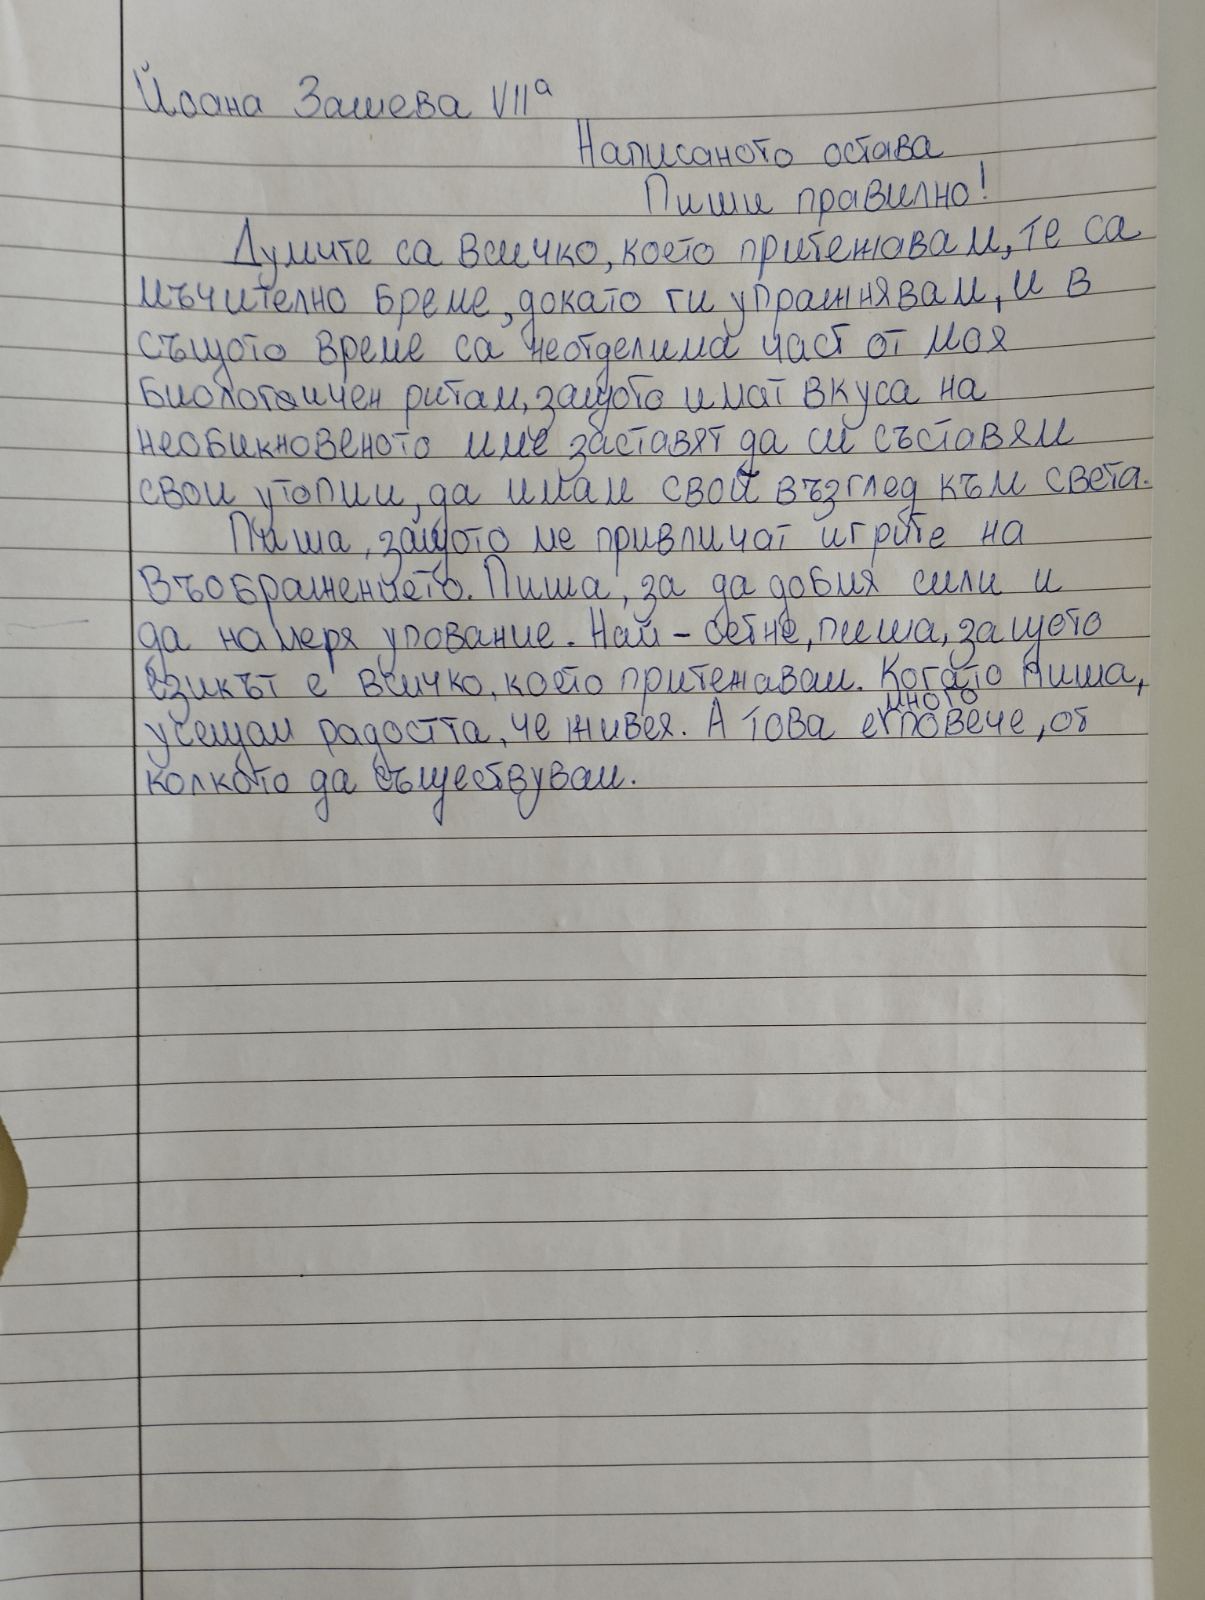 Йоана Зашева VIIа
Написаното остава
Пиши правилно!
Думите са всичко, което притежавам, те са
мъчително бреме, докато ги упражнявам, и в
същото време са неотделима част от моя
биологичен ритам, защото имат вкуса на
необикновеното и ме заставят да си съставям
свои утопии, да имам свой възглед към света.
Пиша, защото ме привличат игрите на
въображението. Пиша, за да добия сили и
да намеря упование. Най-сетне, пиша, защото
езикът е всичко, което притежавам. Когато пиша,
усещам радостта, че живея. А това е много повече, от
колкото да съществувам.